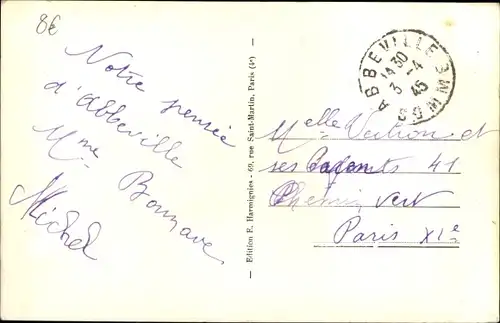 8€
Notre pensée
d'Abbeville
Mme Bonnave
Michel
Edition F. Harmignies - 69, rue Saint-Martin, Paris (4e)
ABBEVILLE SOMME
14 30
3 - 4
45
Melle et
ses 41
Chemin vert
Paris XIe